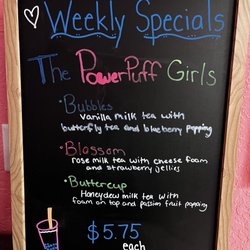 Weekly Specials
The PowerPuff Girls
· Bubbles
vanilla milk tea with
butterfly tea and blueberry popping
· Blossom
rose milk tea with cheese foam
and strawberry jellies
· Buttercup
Honeydew milk tea with
foam on top and passion fruit popping
$5.75
each